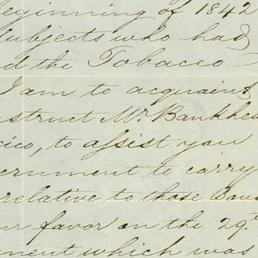 eginning of 1842
Subjects who had
d the Tobacco
I am to acquaint
nstruct Mr Bankhea
ico, to assist you
ernment to carry
relative to those Bon
ur favor on the 29th
ment which was